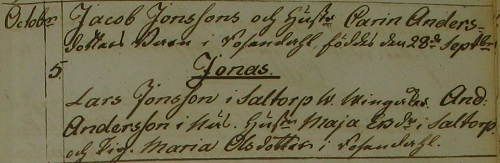 October Jacob Jonssons och Hustr Carin Anders-
dotters Barn i Rosendahl föddes den 28de Septbr
5 Jonas.
Lars Jonsson i Saltorp W. And:
Andersson i Hustr Maja Ersdr i Saltorp
och Pig. Maria Olsdotter i Rosendahl.